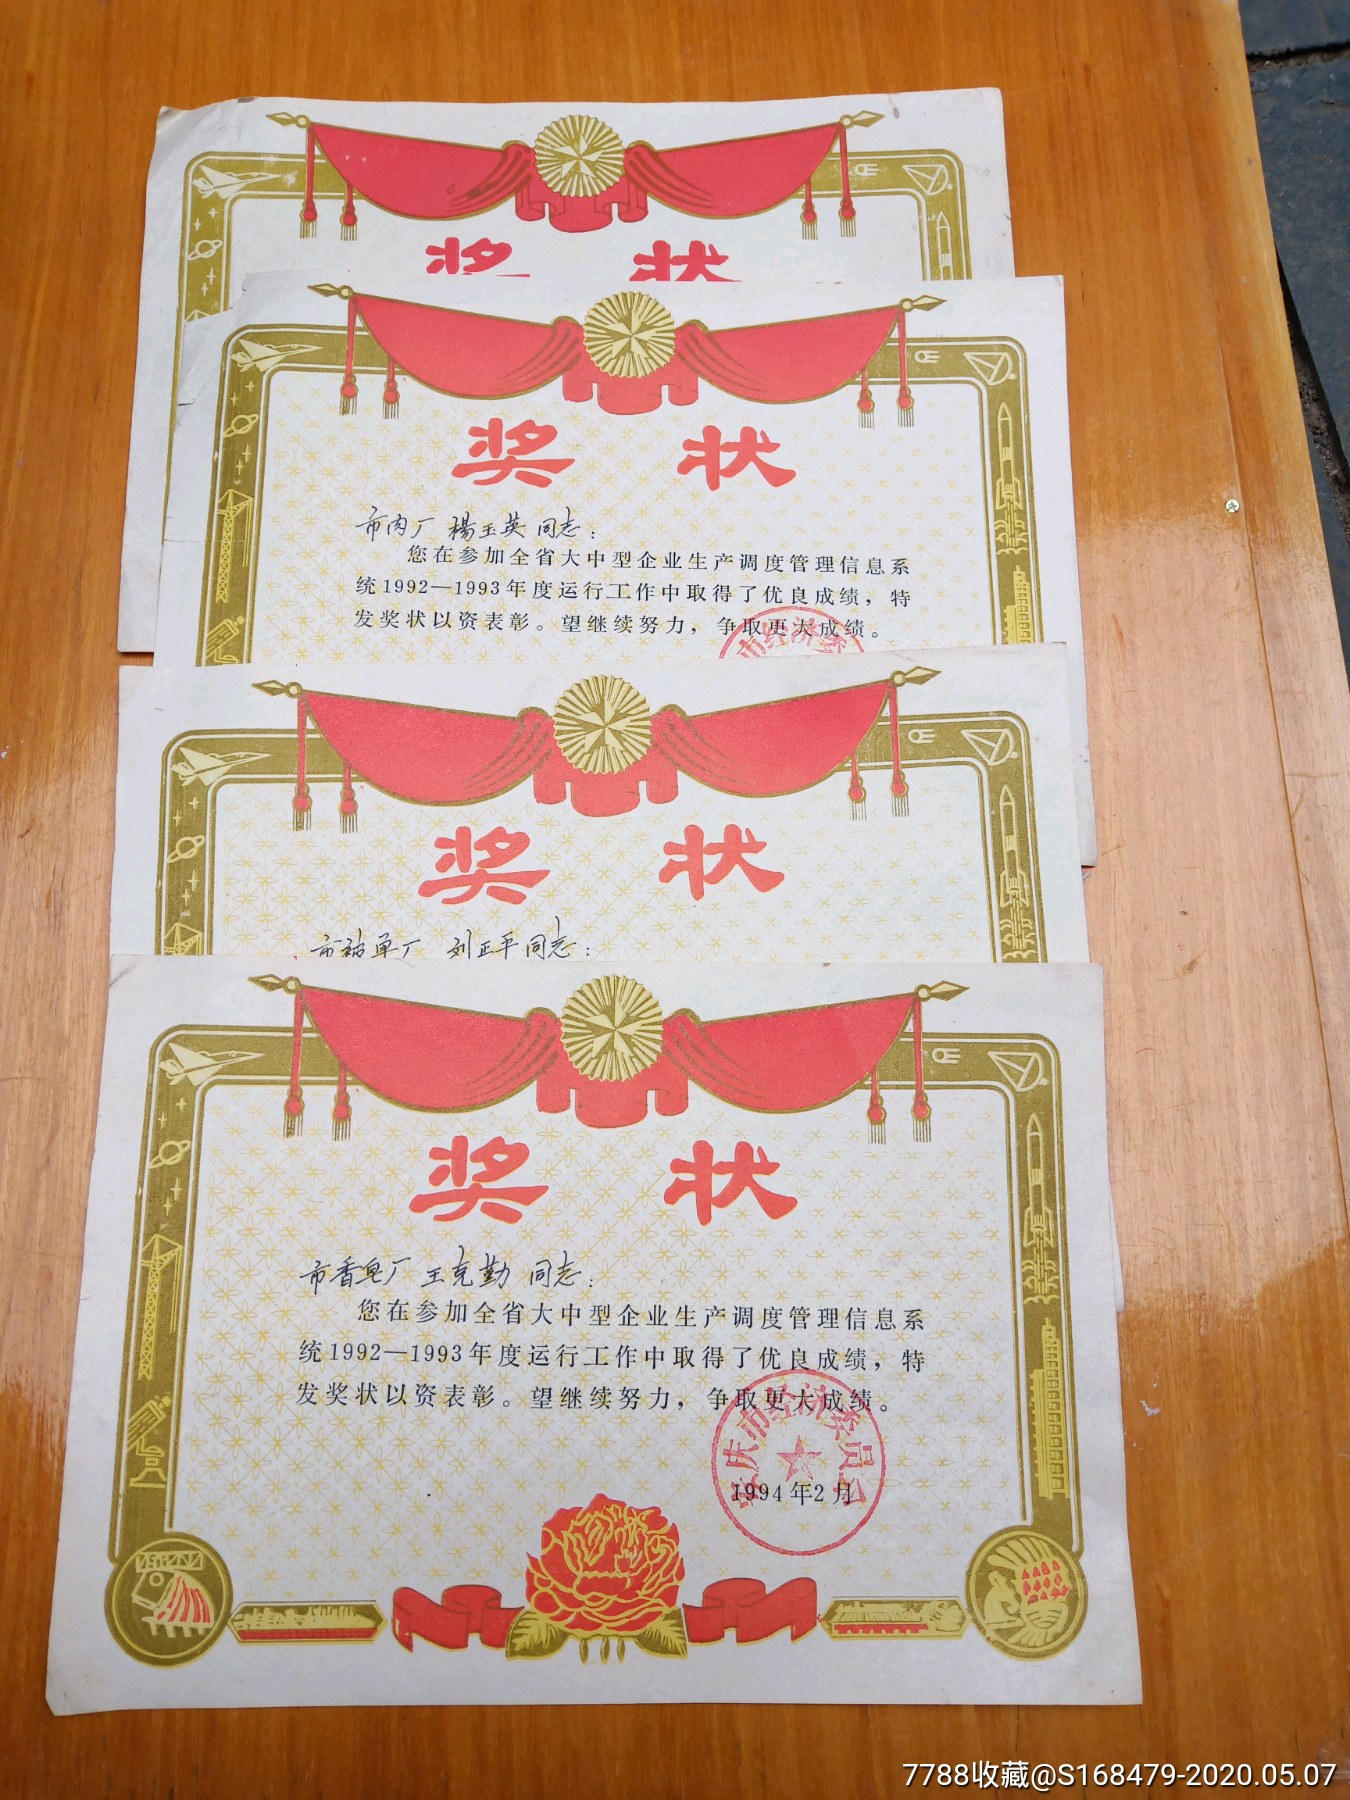 奖 状
奖 状
市肉厂 楊玉英 同志：
您在参加全省大中型企业生产调度管理信息系
统1992—1993年度运行工作中取得了优良成绩，特
发奖状以资表彰。望继续努力，争取更大成绩。
市经济委
奖 状
市被单厂 刘正平 同志：
奖 状
市香皂厂 王克勤 同志：
您在参加全省大中型企业生产调度管理信息系
统1992—1993年度运行工作中取得了优良成绩，特
发奖状以资表彰。望继续努力，争取更大成绩。
安庆市经济委员会
1994年2月
7788收藏@S168479-2020.05.07